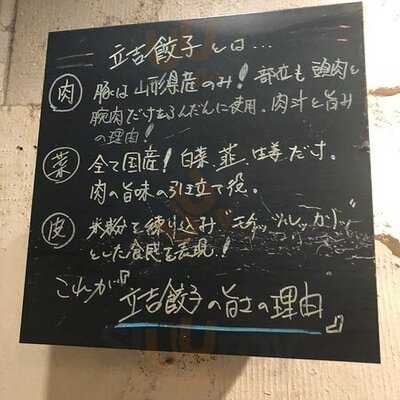 立吉餃子とは...
肉 豚は山形県産のみ！部位も頭肉と
腕肉だけをふんだんに使用。肉汁と旨み
の理由！
菜 全て国産！白菜、韮、生姜だけ。
肉の旨味の引立て役。
皮 米粉を練り込み"モチッツルッカリッ"
とした食感を表現！
これが『
立吉餃子の旨さの理由』